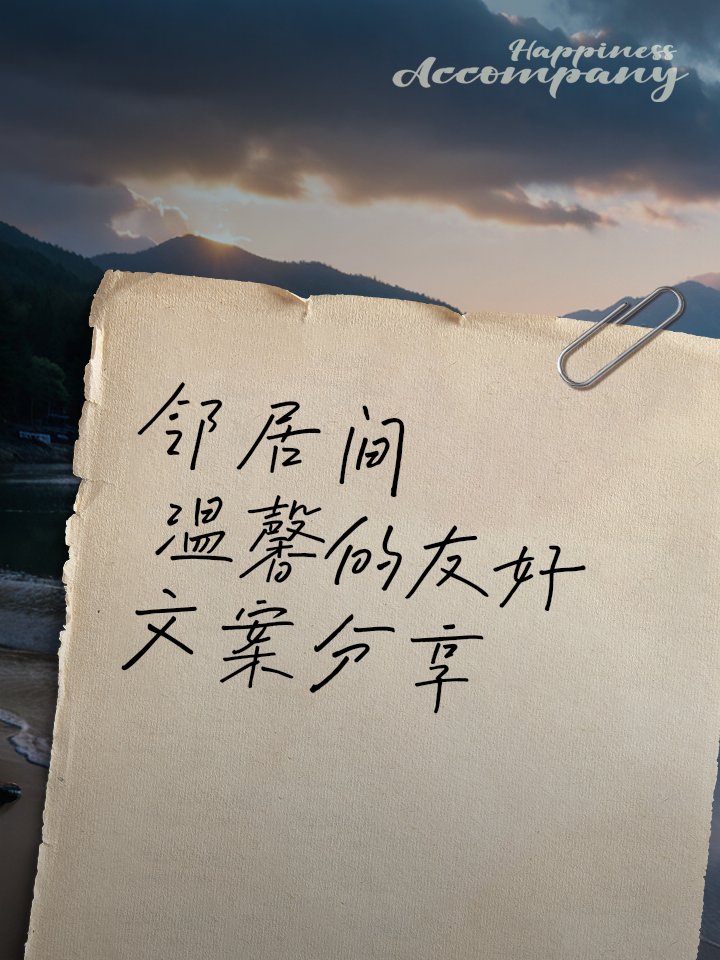 Happiness
Accompany
邻居间
温馨的友好
文案分享